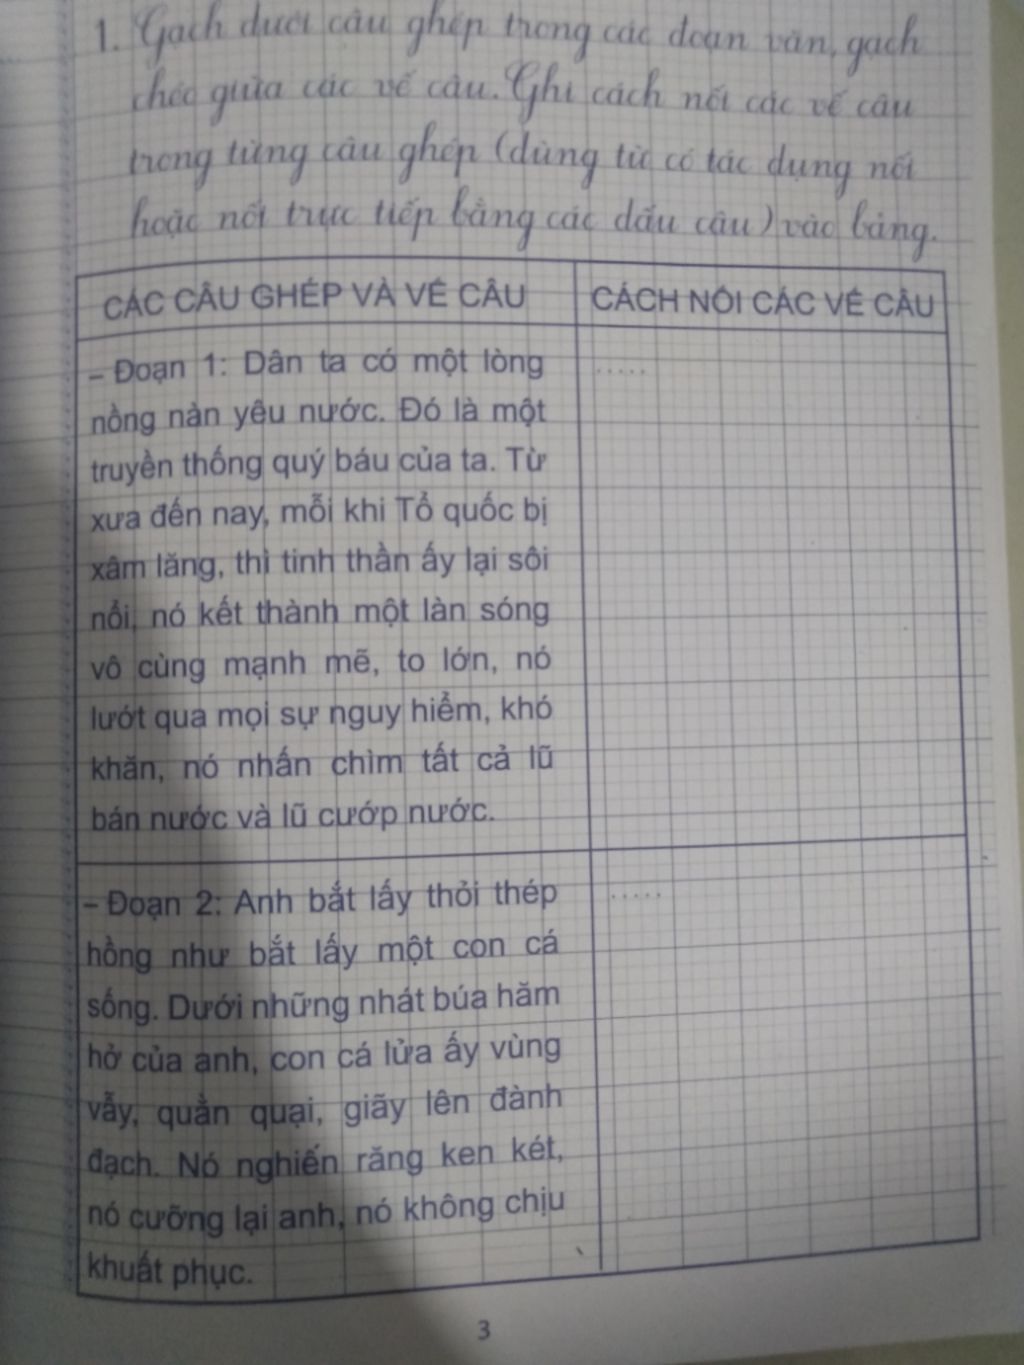 1. Gạch dưới câu ghép trong các đoạn văn, gạch
chéo giữa các vế câu. Ghi cách nối các vế câu
trong từng câu ghép (dùng từ có tác dụng nối
hoặc nối trực tiếp bằng các dấu câu) vào bảng.
CÁC CÂU GHÉP VÀ VẾ CÂU
CÁCH NỐI CÁC VẾ CÂU
– Đoạn 1: Dân ta có một lòng
nồng nàn yêu nước. Đó là một
truyền thống quý báu của ta. Từ
xưa đến nay, mỗi khi Tổ quốc bị
xâm lăng, thì tinh thần ấy lại sôi
nổi, nó kết thành một làn sóng
vô cùng mạnh mẽ, to lớn, nó
lướt qua mọi sự nguy hiểm, khó
khăn, nó nhấn chìm tất cả lũ
bán nước và lũ cướp nước.
.....
– Đoạn 2: Anh bắt lấy thỏi thép
hồng như bắt lấy một con cá
sống. Dưới những nhát búa hăm
hở của anh, con cá lửa ấy vùng
vẫy, quằn quại, giãy lên đành
đạch. Nó nghiến răng ken két,
nó cưỡng lại anh, nó không chịu
khuất phục.
.....
3